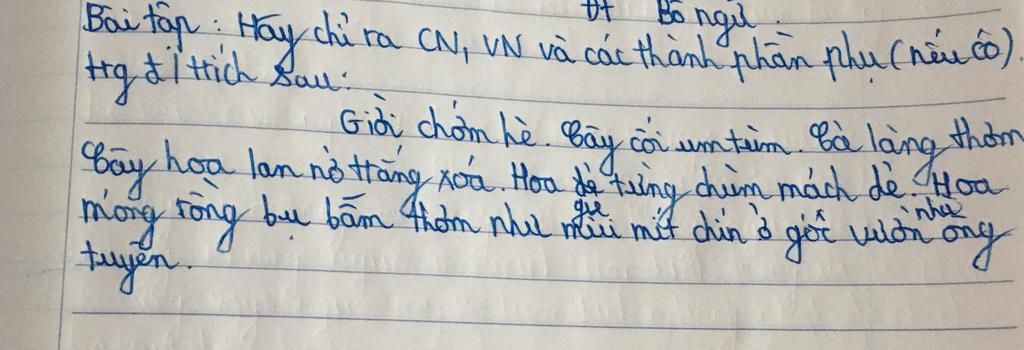 ĐT Bổ ngữ.
Bài tập: Hãy chỉ ra CN, VN và các thành phần phụ (nếu có).
trg đ/trích sau:
Giời chớm hè. Cây cối um tùm. Cả làng thơm
Cây hoa lan nở trắng xóa. Hoa dẻ từng chùm mách dẻ. Hoa
móng rồng bụ bẫm thơm như mùi mít chín ở góc vườn nhà ông
tuyên.